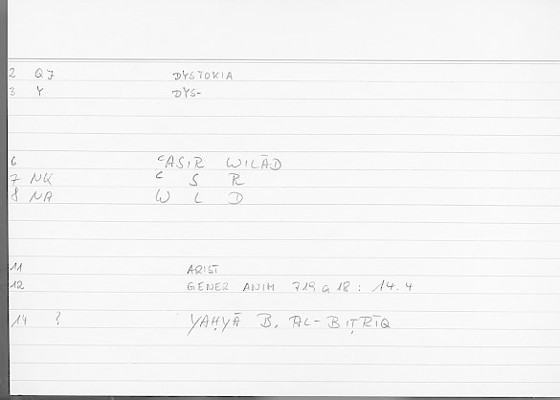 2 QJ DYSTOKIA
3 Y DYS-
6 ʿASIR WILĀD
7 NK ʿ S R
8 NA W L D
11 ARIST
12 GENER ANIM 719 a 18 : 14.4
14 ? YAḤYĀ B. AL-BIṬRĪQ